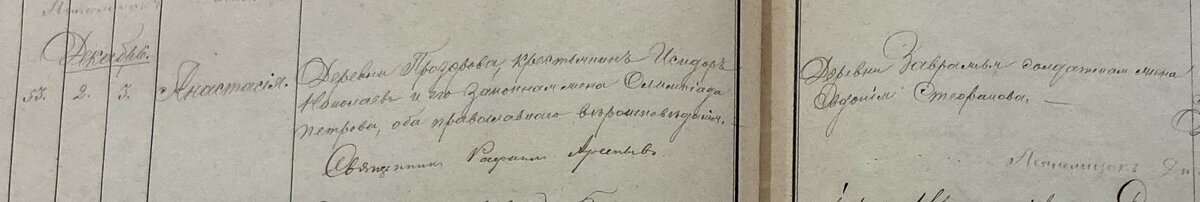 Декабрь.
53. 2. 3. Анастасія.
Деревни Прозорова, крестьянинъ Исидоръ
Николаевъ и его законная жена Олимпіада
Петрова, оба православнаго вѣроисповѣданія.
Священникъ Арсеньевъ.
Деревни солдатская жена
Евдокія Стефанова.